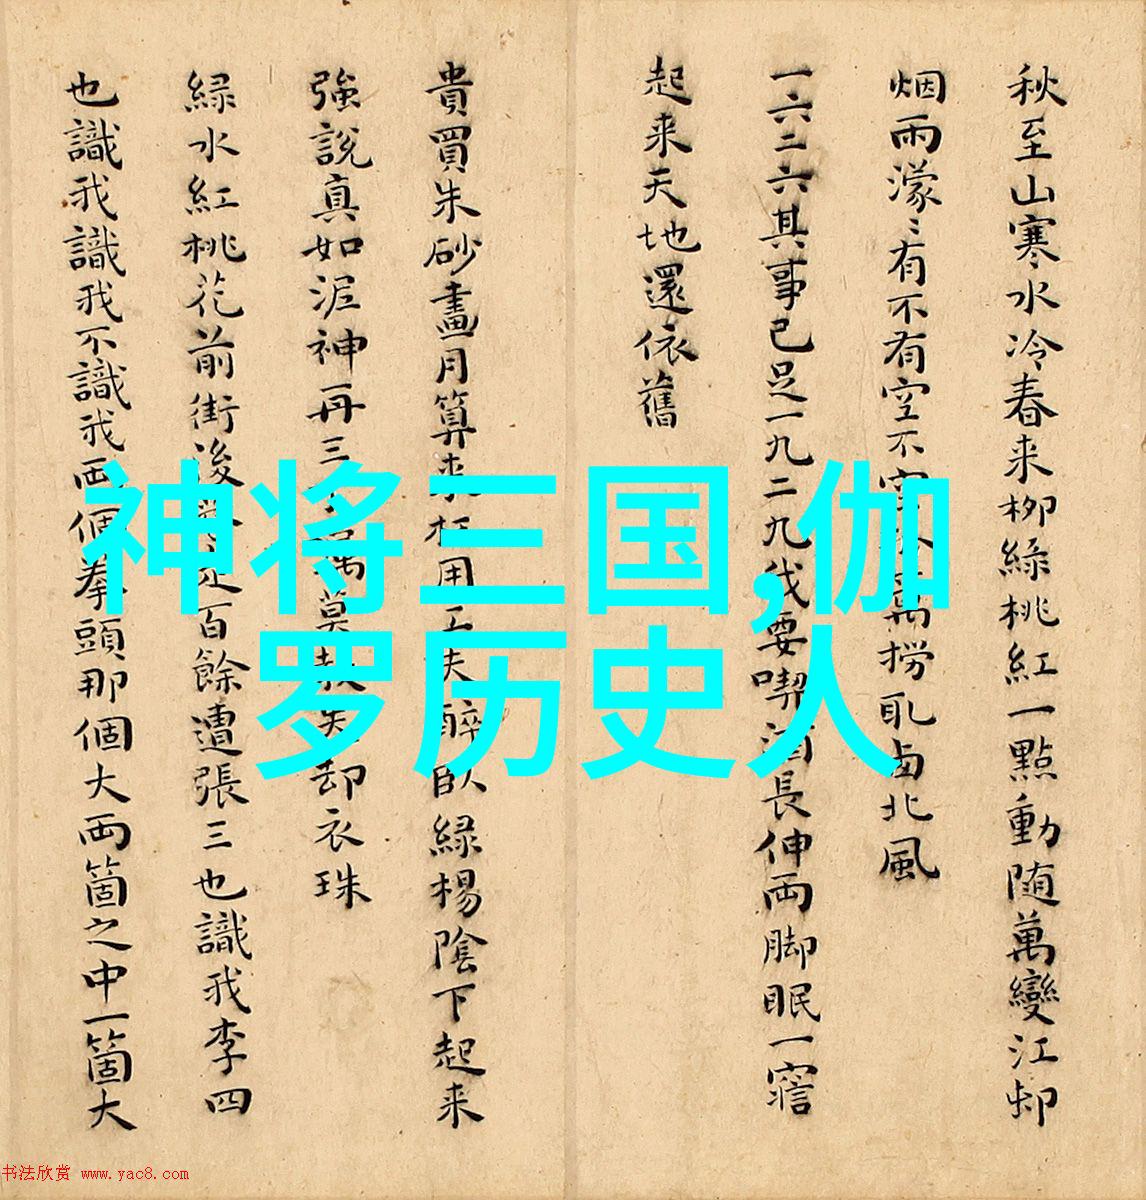 秋至山寒水冷春来柳緑桃紅一點動随萬變江邨
烟雨濛〻有不有空不空 萬撈取 北風
一六二六其事已足一九二九我要喫酒長伸両脚眠一寤
起来天地還依舊
貴買朱砂畫月算来枉用工夫醉臥緑楊陰下起来
強說真如泥神再三 莫教失却衣珠
緑水紅桃花前街後 百餘遭張三也識我李四
也識我識我不識我両個拳頭那個大両箇之中一箇大
神将三国,伽
罗历史人
书法欣赏 www.yac8.com